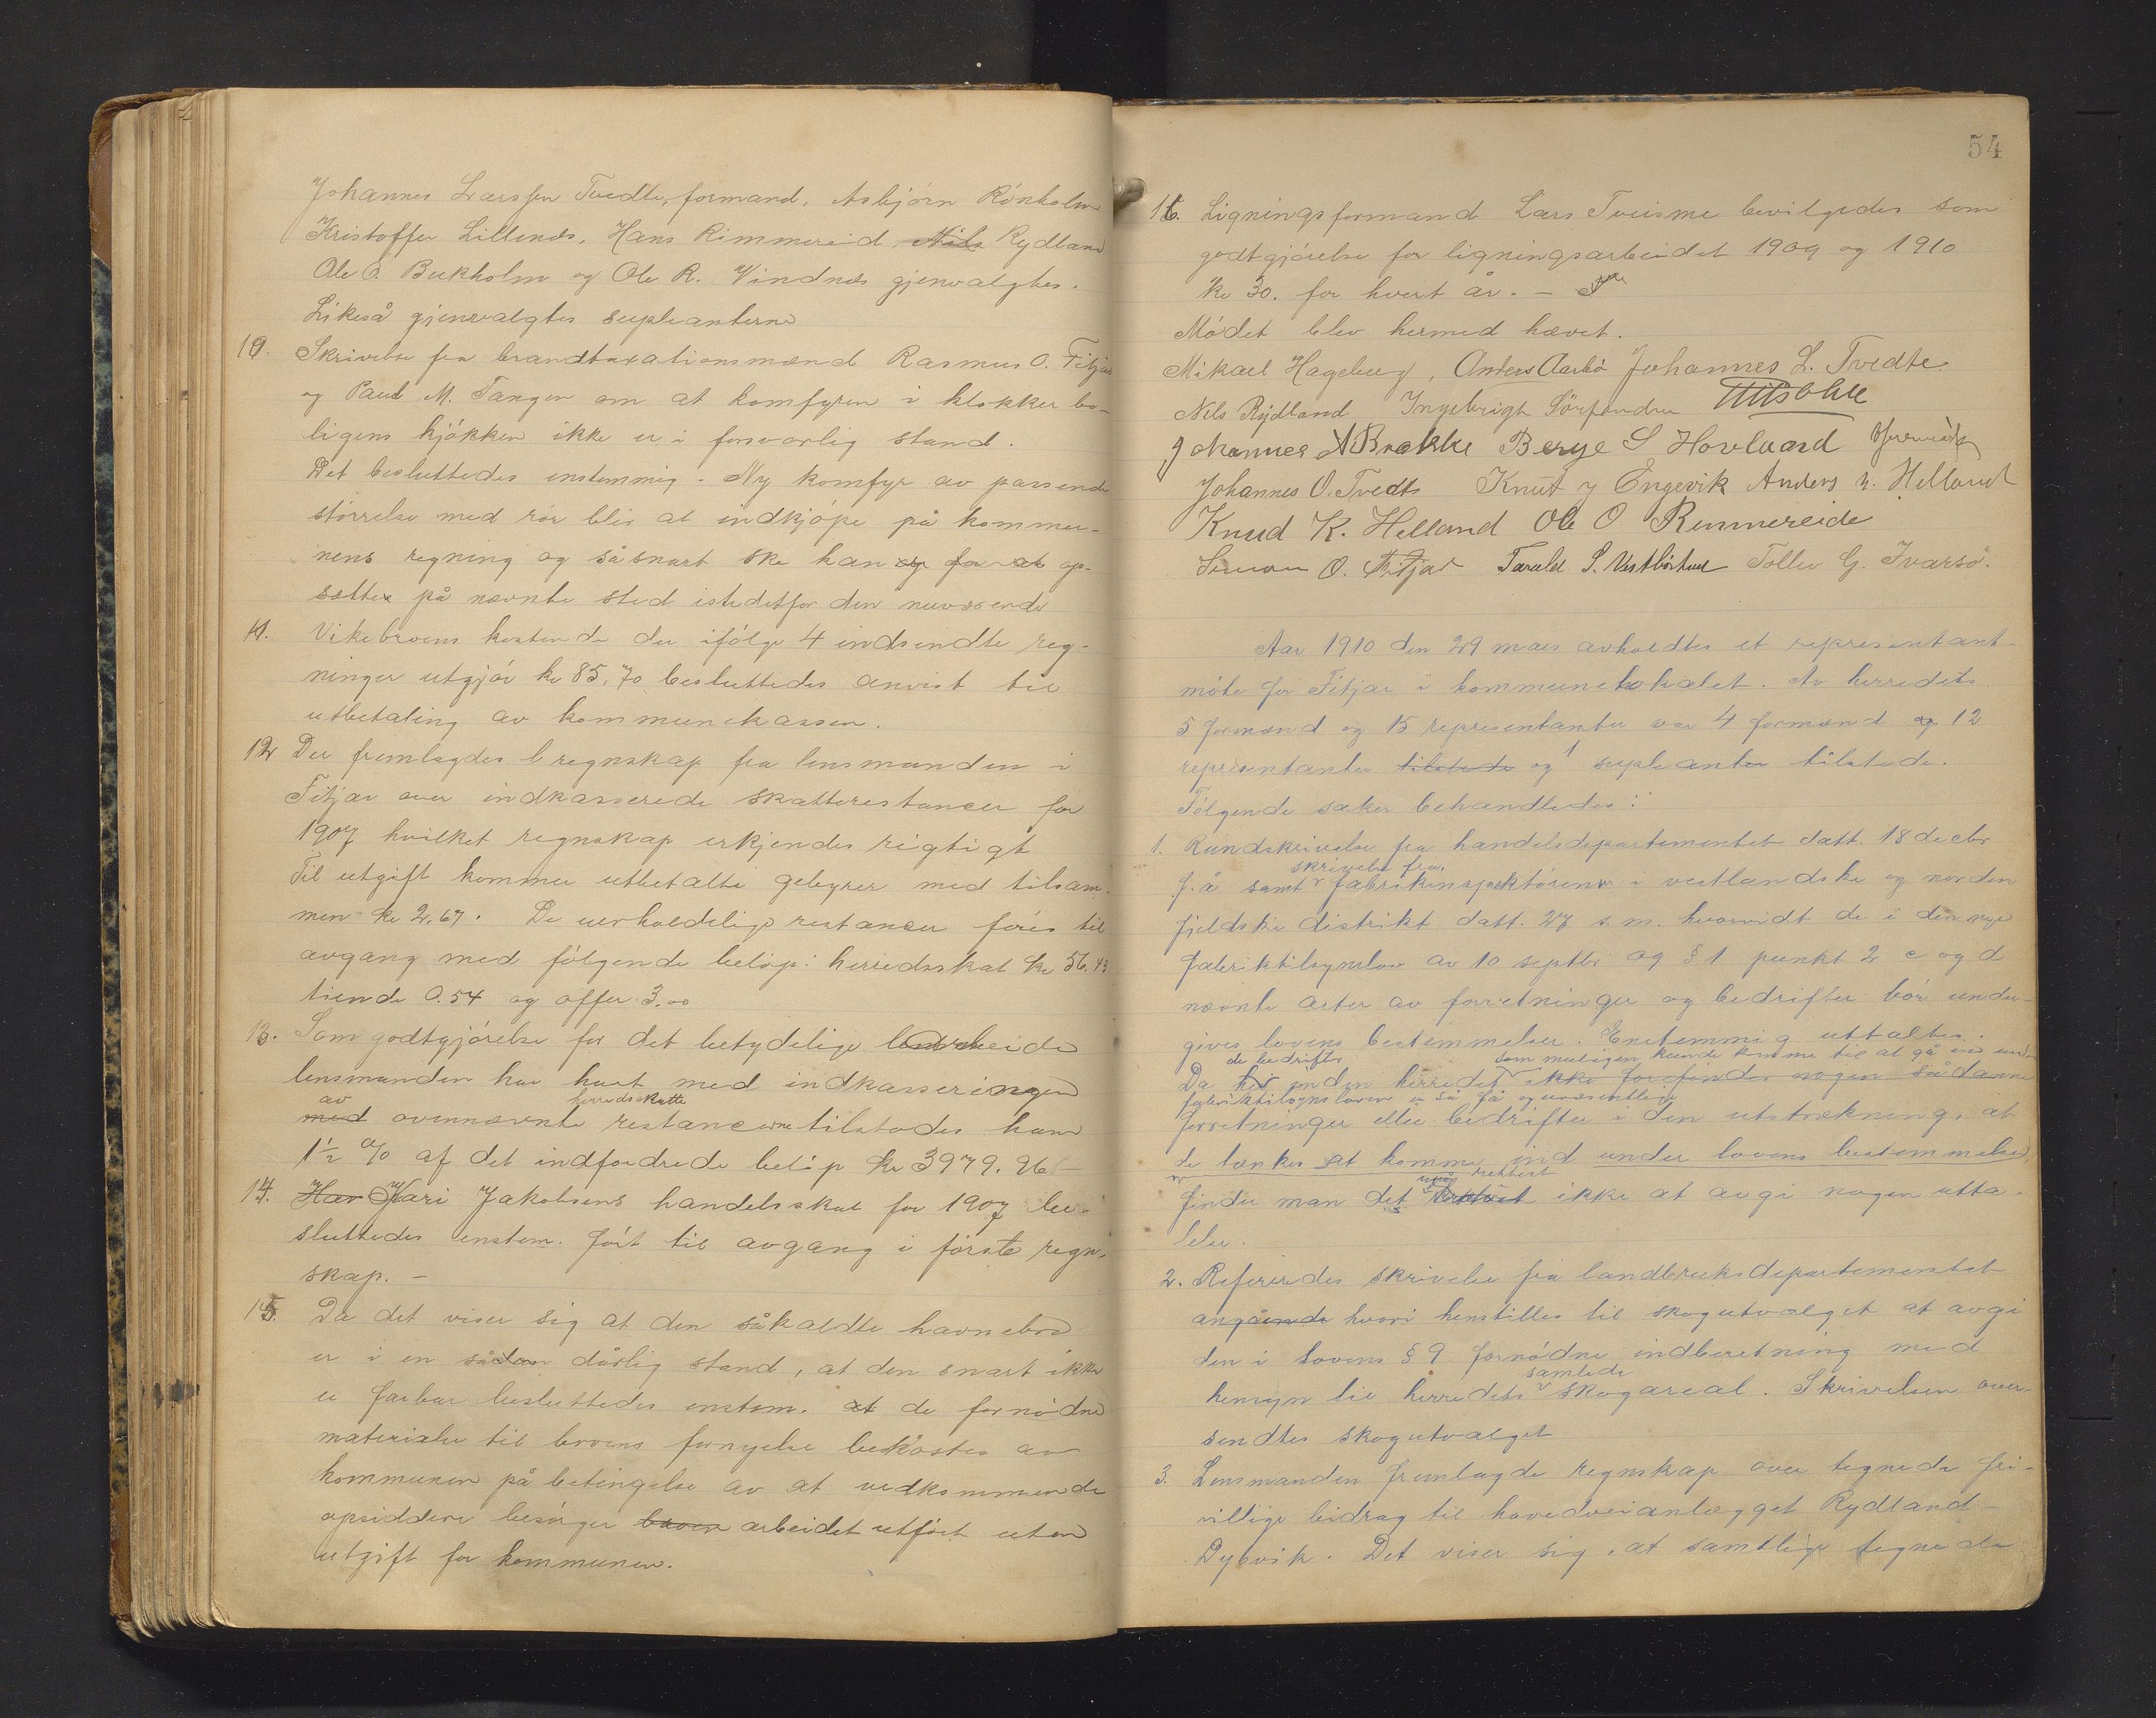 Johannes Larssen Tvedte, formand, Asbjørn Rönholm
Kristoffer Lillenes, Hans Rimmereid, Nils Rydland
Ole O. Bukholm og Ole R. Vindnes gjenvalgtes.
Likeså gjenvalgtes supleanterne
10. Skrivelse fra brandtaxationsmænd Rasmus O. Fitjar
og Paul M. Tangen om at komfyren i klokkerbo-
ligens kjøkken ikke er i forsvarlig stand.
Det besluttedes enstemmig. Ny komfyr av passende
størrelse med rør blir at indkjøpe på kommu-
nens regning og såsnart ske kan og for at op-
sættes på nævnte sted istedetfor den nuværende
11. Vikebroens kostende der ifølge 4 indsendte reg-
ninger utgjør kr 85,70 besluttedes anvist til
utbetaling av kommunekassen.
12. Der fremlagdes regnskap fra lensmanden i
Fitjar over indkasserede skatterestancer for
1907 hvilket regnskap erkjendes rigtigt
Til utgift kommer utbetalte gebyrer med tilsam-
men kr 2.67. De uerholdelige restancer føres til
avgang med følgende beløp: herredsskat kr 56.43
tiende 0.54 og offer 3.00
13. Som godtgjørelse for det betydelige arbeide
lensmanden har havt med indkasseringen
av herredsskatte
med ovennævnte restancerne tilstodes ham
1½ % af det indfordrede beløp kr 3979.26 –
14. Hav Kari Jakobsens handelsskat for 1907 be-
sluttedes enstem. ført til avgang i første regn-
skap. –
15. Da det viser sig at den såkaldte havnebro
er i en sådan dårlig stand, at den snart ikke
er farbar besluttedes enstem. at de fornødne
materialer til broens fornyelse bekostes av
kommunen på betingelse av at vedkommende
opsiddere besørger broen arbeidet utført uten
utgift for kommunen.
54
16. Ligningsformand Lars Tveisme bevilgedes som
godtgjørelse for ligningsarbeidet 1909 og 1910
kr 30. for hvert år. –
Mødet blev hermed hævet.
Mikael Hageberg, Anders Aarbø Johannes L. Tvedte
Nils Rydland Ingebrigt Sørfonden
Johannes A Brekke Berge S Hovland
Johannes O. Tvedte Knut J Engevik Anders N. Helland
Knud K. Helland Ole O Rimmereide
Simon O. Fitjar Tarald S. Vestbøstad Tollev G. Ivarsø.
Aar 1910 den 29 mars avholdtes et representant-
møte for Fitjar i kommunelokalet. Av herredets
5 formænd og 15 representanter var 4 formænd og 12
representanter tilstede og 1 supleanter tilstede.
Følgende saker behandledes:
1. Rundskrivelse fra handelsdepartementet datt. 18 decbr
skrivelse fra
f. å samt fabrikinspektøren i vestlandske og norden
fjeldske distrikt datt. 27 s.m. hvorvidt de i den nye
fabriktilsynslov av 10 septbr og § 1 punkt 2 c og d
nævnte arter av forretninger og bedrifter bør under-
gives lovens bestemmelser. Enstemmig uttaltes.
de bedrifter som muligens kunde komme til at gå ind under
Da her inden herredet ikke forefindes nogen sådanne
fabriktilsynsloven er så få og uvæsentlige
forretninger eller bedrifter i den utstrækning, at
de tænkes at komme ind under lovens bestemmelser,
rettest
finder man det ikke at avgi nogen utta-
lelse.
2. Refereredes skrivelse fra landbruksdepartementet
angående hvori henstilles til skogutvalget at avgi
den i lovens § 9 fornødne indberetning med
samlede
hensyn til herredets skogareal. Skrivelsen over-
sendtes skogutvalget
3. Lensmanden fremlagde regnskap over tegnede fri-
villige bidrag til hovedveianlægget Rydland –
Dybvik. Det viser sig, at samtlige tegnede